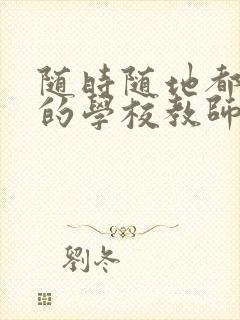 随時随地都
的學校教師
劉冬